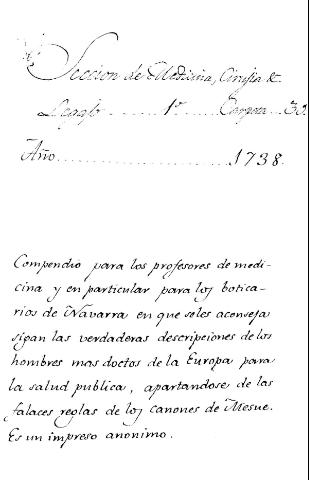 Seccion de Medicina, Cirujia &.
Legajo ......... 1º ....... Carpeta . 33.
Año ....................... 1738.
Compendio para los profesores de medi-
cina y en particular para los botica-
rios de Navarra en que seles aconseja
sigan las verdaderas descripciones de los
hombres mas doctos de la Europa para
la salud publica, apartandose de las
falaces reglas de los canones de Mesue.
Es un impreso anonimo.